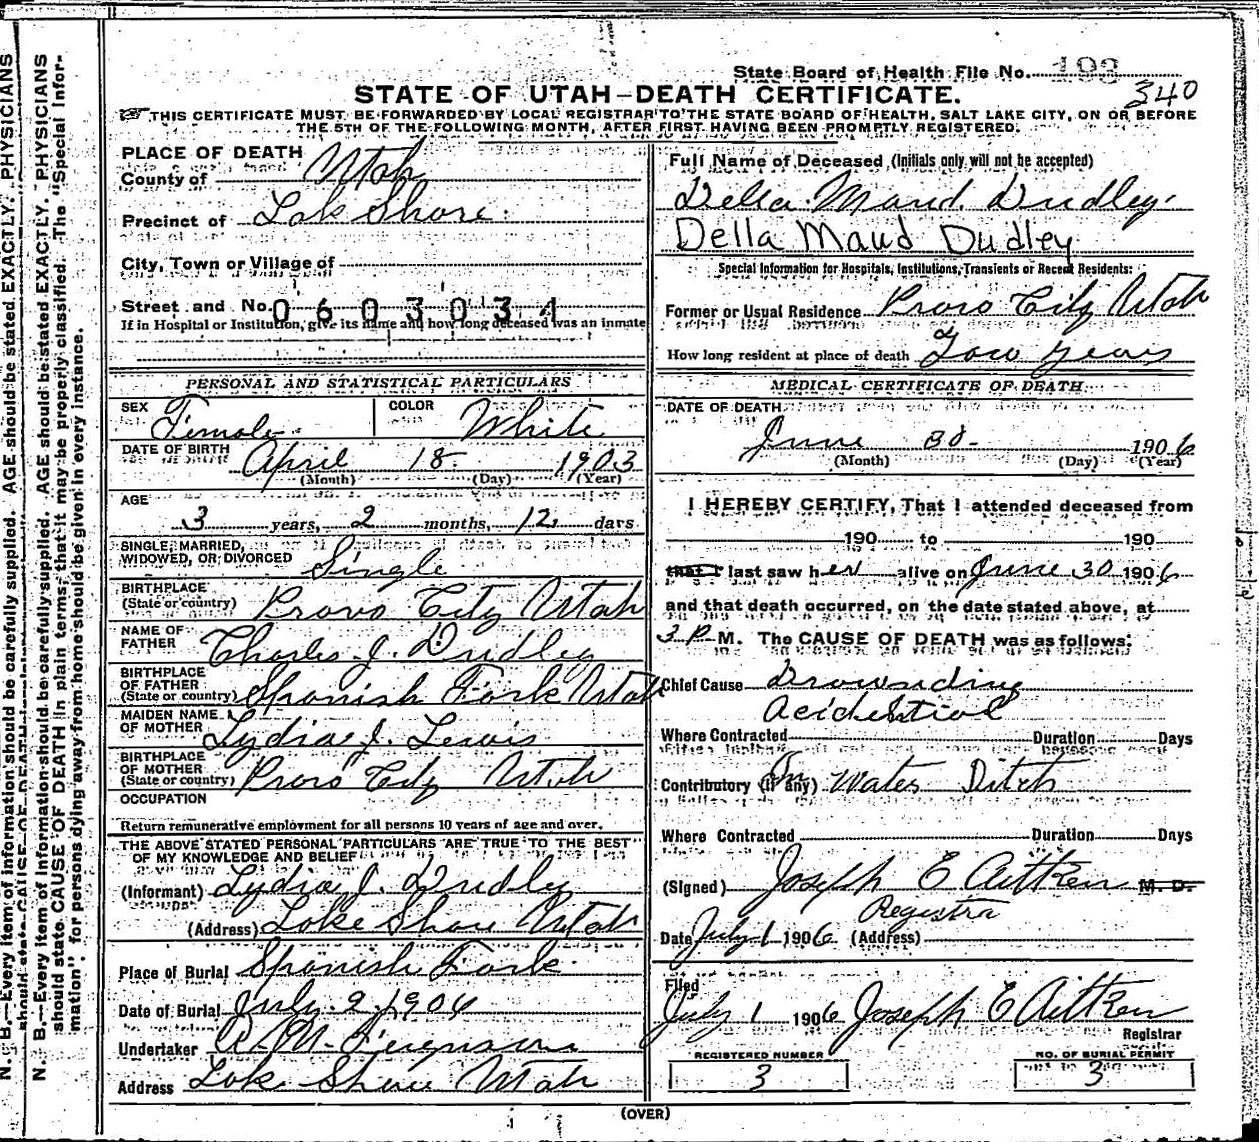 State Board of Health File No. 193
340
STATE OF UTAH—DEATH CERTIFICATE.
THIS CERTIFICATE MUST BE FORWARDED BY LOCAL REGISTRAR TO THE STATE BOARD OF HEALTH, SALT LAKE CITY, ON OR BEFORE
THE 5TH OF THE FOLLOWING MONTH, AFTER FIRST HAVING BEEN PROMPTLY REGISTERED.
PLACE OF DEATH
County of Utah
Precinct of Lake Shore
City, Town or Village of
Street and No. 0603034
If in Hospital or Institution, give its name and how long deceased was an inmate
PERSONAL AND STATISTICAL PARTICULARS
SEX Female COLOR White
DATE OF BIRTH April 18 1903
(Month) (Day) (Year)
AGE
3 years, 2 months, 12 days
SINGLE, MARRIED,
WIDOWED, OR DIVORCED Single
BIRTHPLACE
(State or country) Provo City Utah
NAME OF
FATHER Charles J. Dudley
BIRTHPLACE
OF FATHER
(State or country) Spanish Fork Utah
MAIDEN NAME
OF MOTHER Lydia J. Lewis
BIRTHPLACE
OF MOTHER
(State or country) Provo City Utah
OCCUPATION
Return remunerative employment for all persons 10 years of age and over.
THE ABOVE STATED PERSONAL PARTICULARS ARE TRUE TO THE BEST
OF MY KNOWLEDGE AND BELIEF
(Informant) Lydia J. Dudley
(Address) Lake Shore Utah
Place of Burial Spanish Fork
Date of Burial July 2, 1906
Undertaker A. M. Ferguson
Address Lake Shore Utah
Full Name of Deceased (Initials only will not be accepted)
Della Maud Dudley
Della Maud Dudley
Special Information for Hospitals, Institutions, Transients or Recent Residents:
Former or Usual Residence Provo City Utah
How long resident at place of death Two years
MEDICAL CERTIFICATE OF DEATH
DATE OF DEATH
June 30 1906
(Month) (Day) (Year)
I HEREBY CERTIFY, That I attended deceased from
190 to 190
that I last saw her alive on June 30 1906
and that death occurred, on the date stated above, at
3 P M. The CAUSE OF DEATH was as follows:
Chief Cause Drownding
Acidential
Where Contracted Duration Days
Contributory (if any) In Water Ditch
Where Contracted Duration Days
(Signed) Joseph E Aitken M. D.
Registra
Date July 1 1906 (Address)
Filed
July 1 1906 Joseph E Aitken
Registrar
REGISTERED NUMBER
3
NO. OF BURIAL PERMIT
3
(OVER)
N. B.—Every item of information should be carefully supplied. AGE should be stated EXACTLY. PHYSICIANS
should state CAUSE OF DEATH in plain terms, that it may be properly classified. The "Special Infor-
mation" for persons dying away from home should be given in every instance.
N. B.—Every item of information should be carefully supplied. AGE should be stated EXACTLY. PHYSICIANS